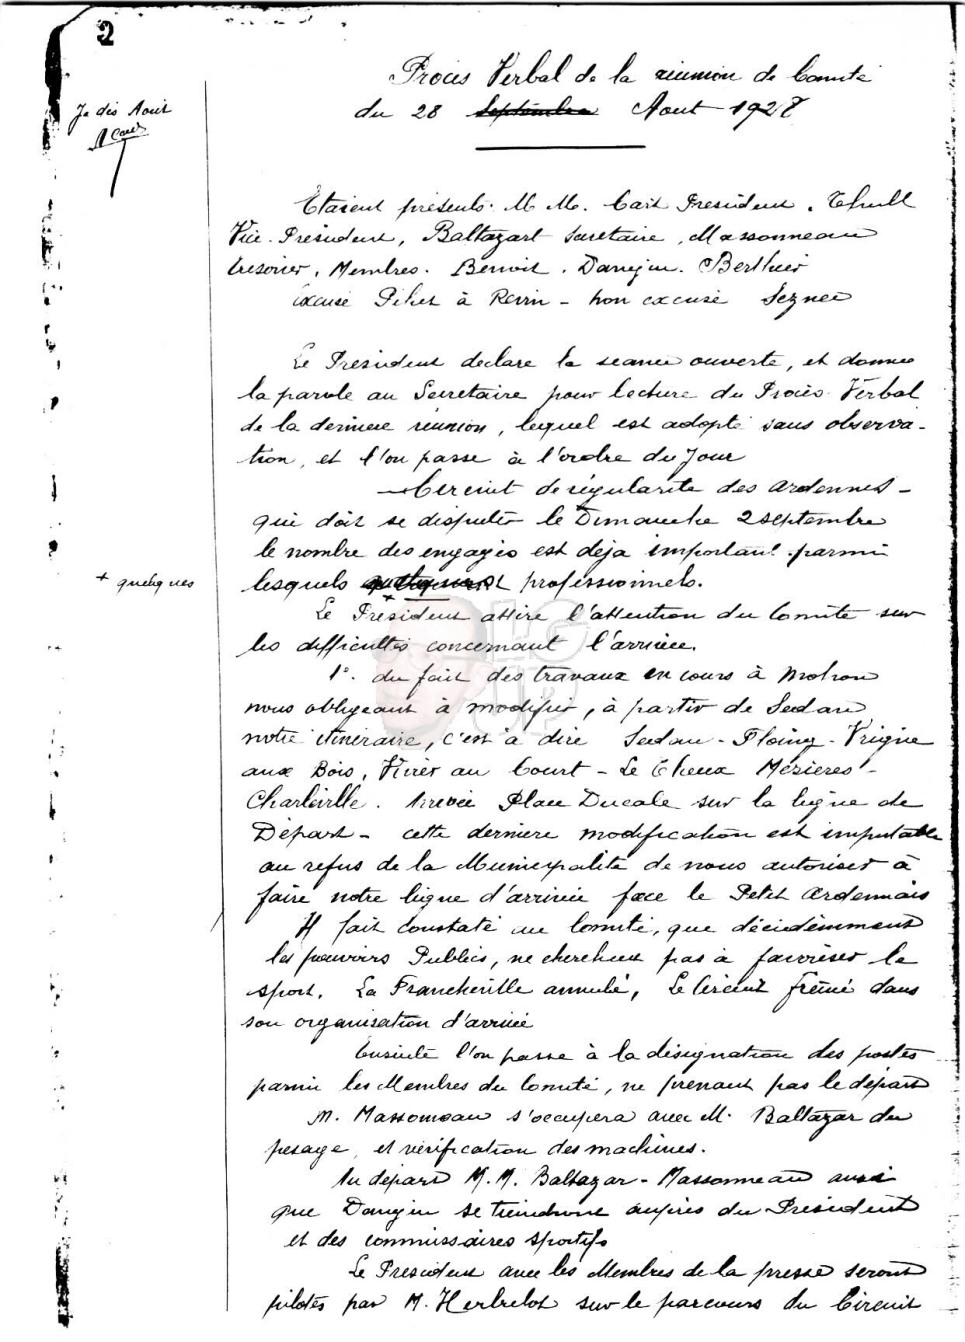 2
Procès Verbal de la réunion de Comité
Je dis Aout
du 28 Septembre Aout 1928
Etaient présents. M M. Cait President. Thull
Vice. President, Baltazart Secretaire, Massonneau
tresorier, Membres. Benoit. Dangin. Berthier
Excusé Pihet à Revin - non excusé Seznec
Le President declare la seance ouverte, et donne
la parole au Secretaire pour lecture du Procès. Verbal
de la derniere réunion, lequel est adopté sans observa-
tion, et l'on passe à l'ordre du Jour
- Circuit de régularité des Ardennes -
qui doit se disputer le Dimanche 2 septembre
le nombre des engagés est déja important parmi
+ quelques
lesquels + professionnels.
Le President attire l'attention du Comité sur
les difficultés concernant l'arrivée.
1°. du fait des travaux en cours à Mohon
nous obligeant à modifier, à partir de Sedan
notre itinéraire, c'est à dire Sedan - Floing - Vrigne
aux Bois, Vivier au Court - Le Theux Mézieres -
Charleville. Arrivée Place Ducale sur la ligne de
Départ - cette derniere modification est imputable
au refus de la Municipalité de nous autoriser à
faire notre ligne d'arrivée face le Petit Ardennais
Il fait constaté au Comité, que décidémment
les pouvoirs Publics, ne cherchent pas à favoriser le
sport. La Francheville annulé, Le Circuit freiné dans
son organisation d'arrivée
Ensuite l'on passe à la désignation des postes
parmi les Membres du Comité, ne prenant pas le départ
M. Massonneau s'occupera avec M. Baltazar du
pesage, et vérification des machines.
Au départ M. M. Baltazar - Massonneau aussi
que Dangin se tiendront aupres du President
et des commissaires sportifs
Le President avec les Membres de la presse seront
pilotés par M. Herbelot sur le parcours du Circuit